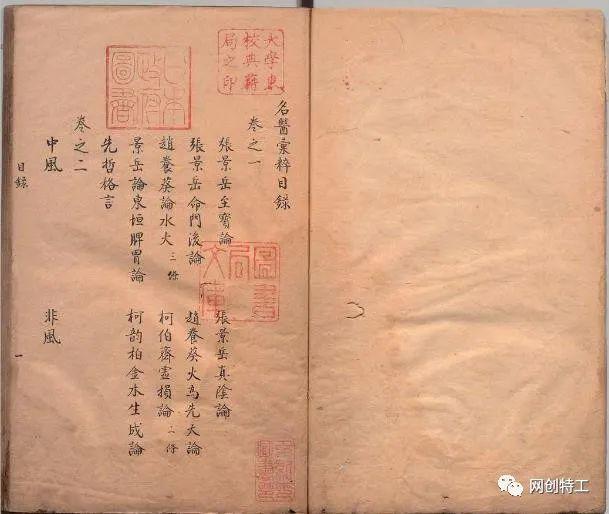 大學東校典籍局之印
日本政府圖書
名醫彙粹目錄
卷之一
張景岳至寶論 張景岳真陰論
張景岳命門後論 趙養葵火為先天論
趙養葵論水火 三條 柯伯齋虛損論 二條
景岳論東垣脾胃論 柯韵柏金水生成論
先哲格言
卷之二
中風 非風
目錄 一
圖書局文庫
网创特工